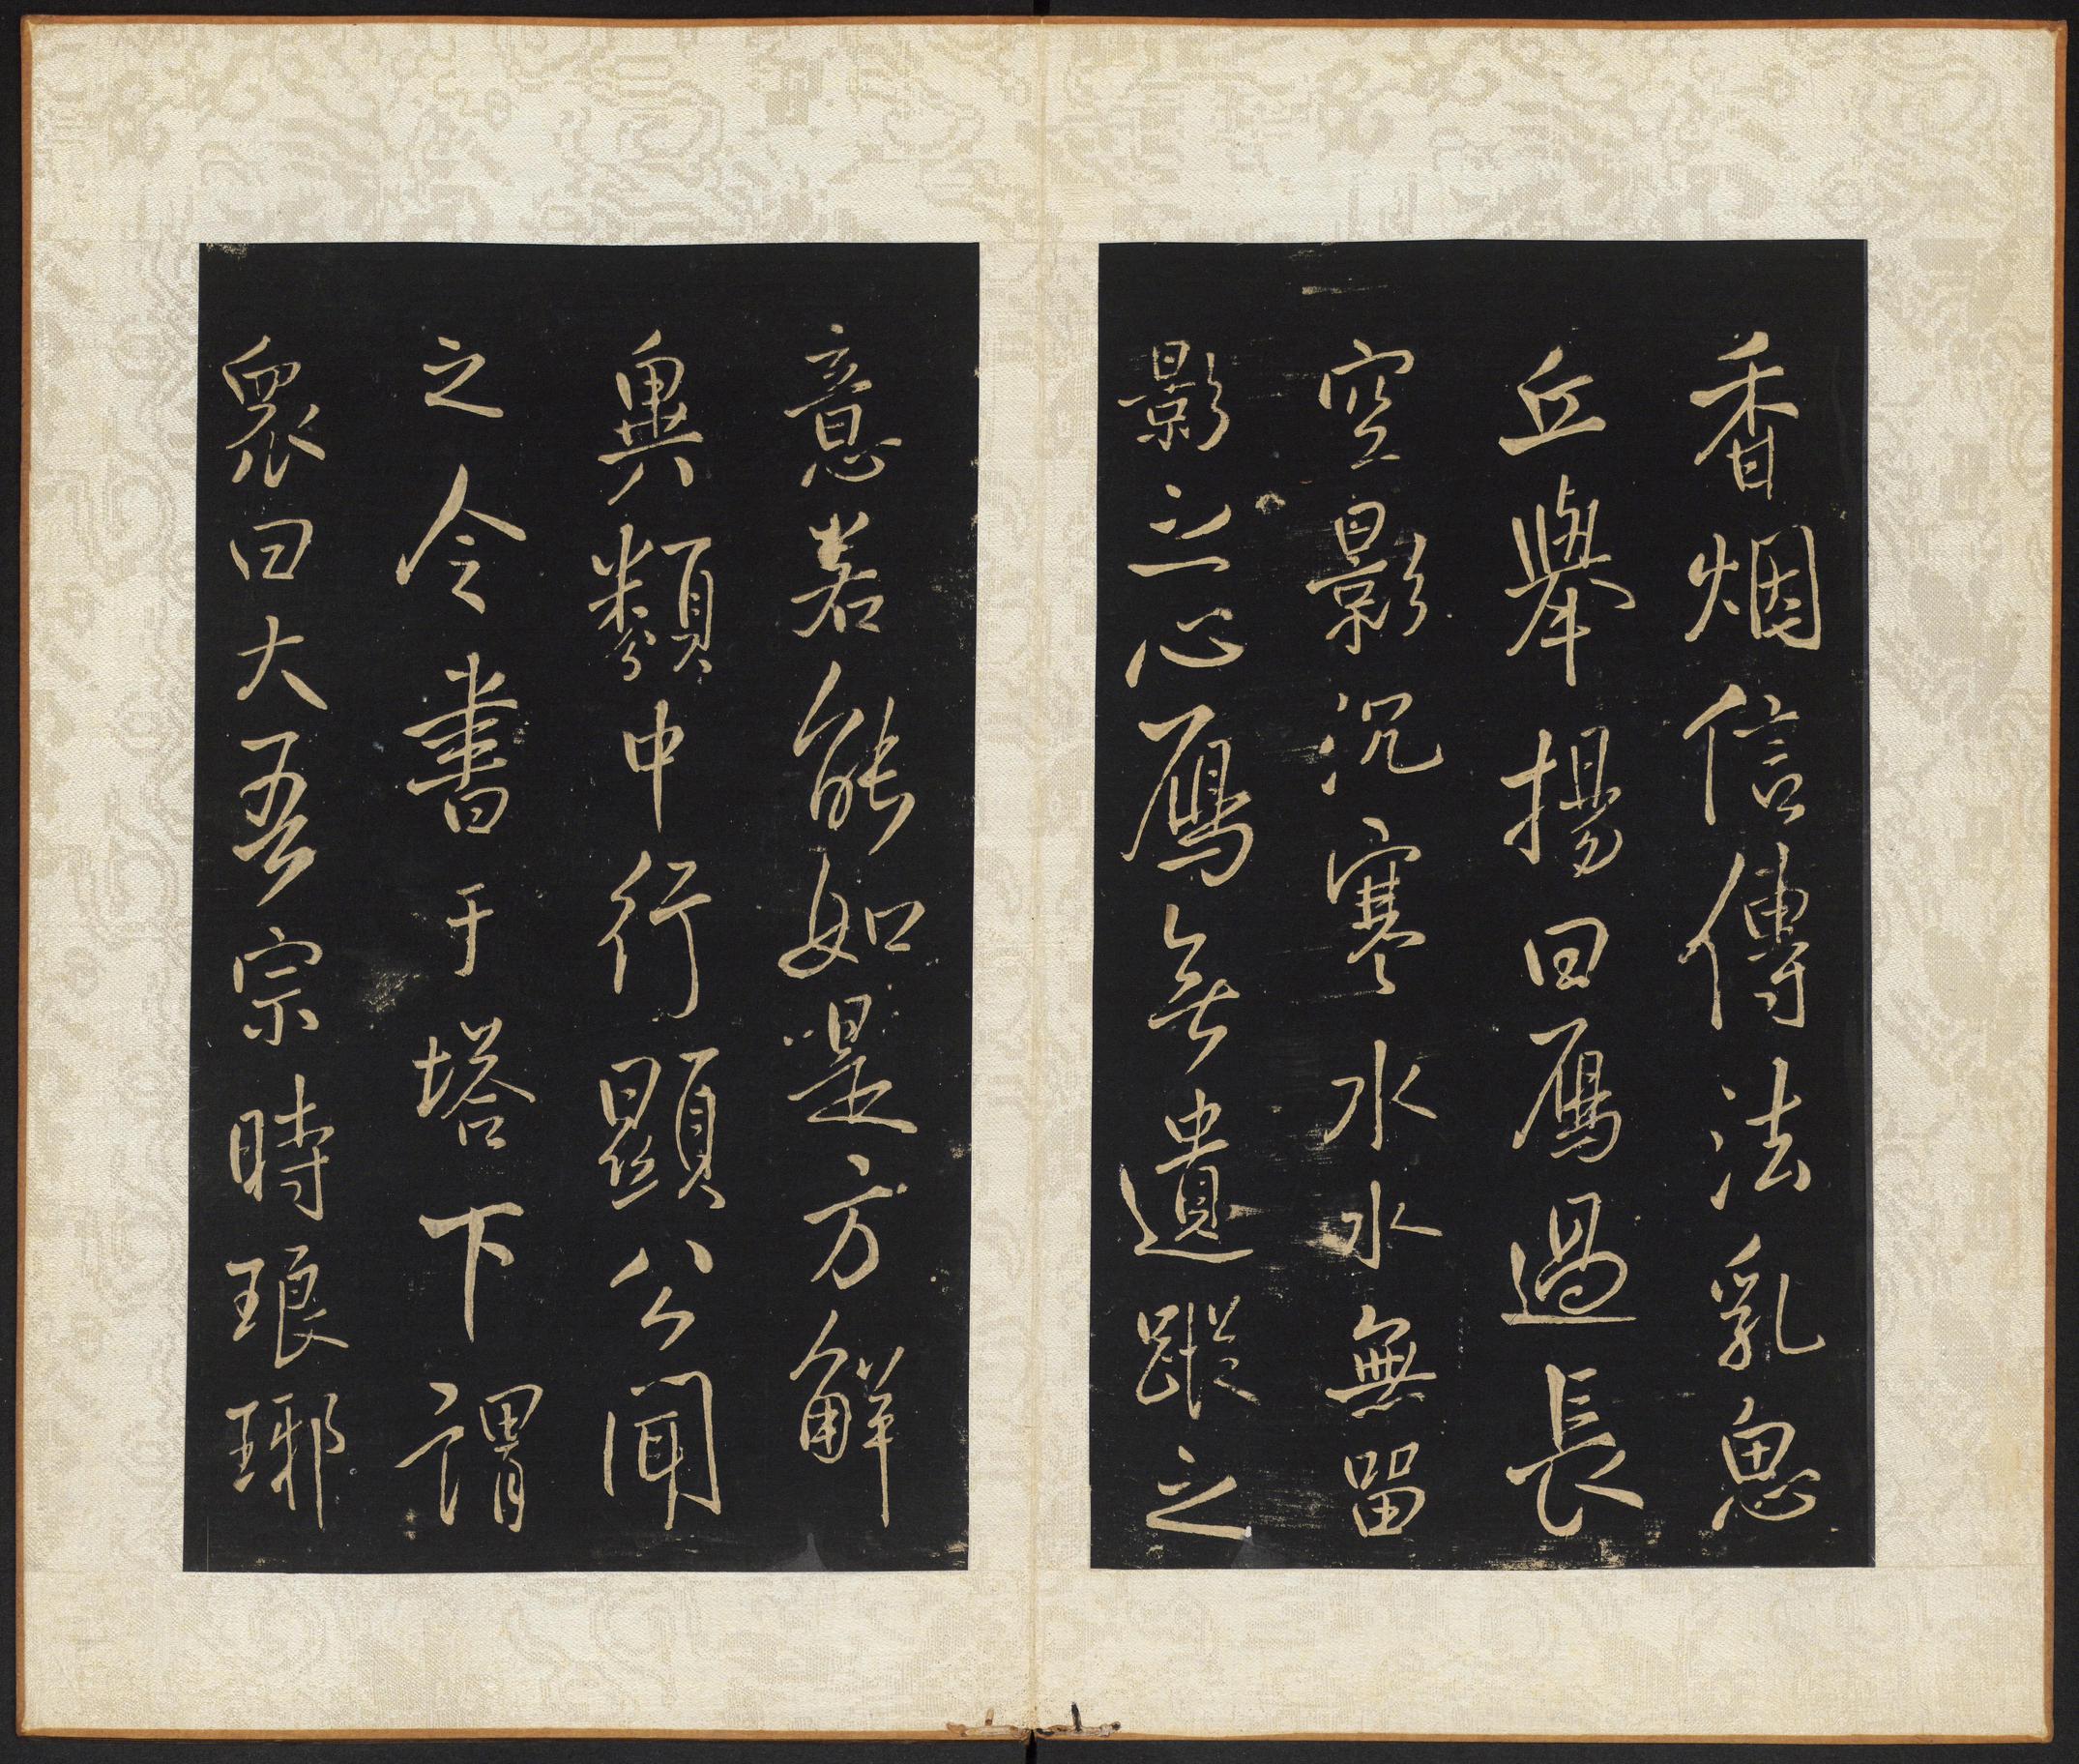 香烟信傳法乳思
丘舉揚曰鴈過長
空影沉寒水水無留
影之心鴈無遺蹤之
意若能如是方解
異類中行顯公聞
之令書于塔下謂
衆曰大吾宗時瑯
琊